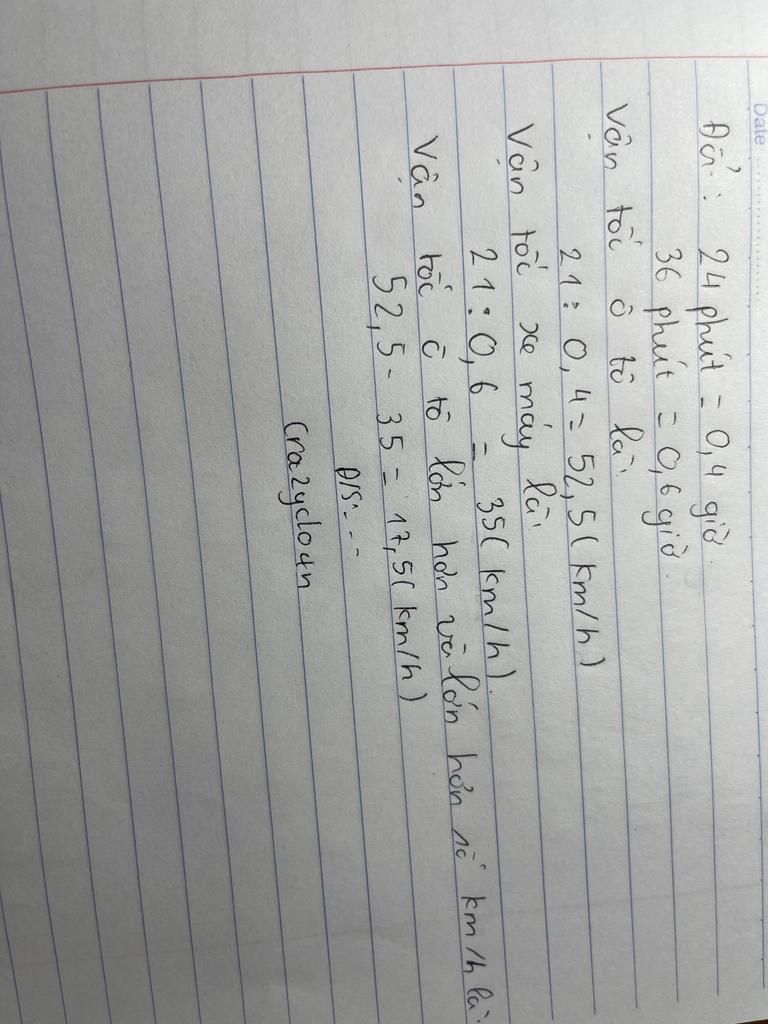 Date
Đổi: 24 phút = 0,4 giờ.
36 phút = 0,6 giờ.
Vận tốc ô tô là:
21 : 0,4 = 52,5 (km/h)
Vận tốc xe máy là:
21 : 0,6 = 35 (km/h).
Vận tốc ô tô lớn hơn và lớn hơn số km/h là:
52,5 - 35 = 17,5 (km/h)
Đ/S: --